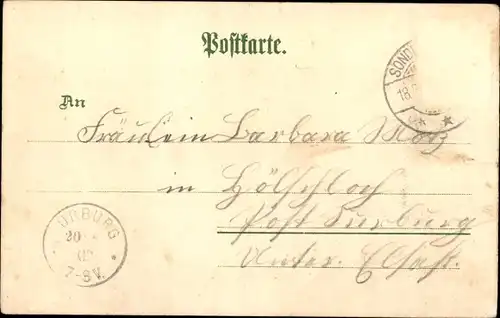 Postkarte.
SOND
18.
An
Fräulein Barbara Motz
in Hölschloch
Post Surburg
Unter. Elsaß.
URBURG
20
02
7-8V.